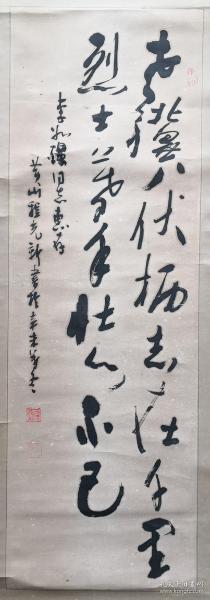 老骥伏枥志在千里
烈士暮年壮心不已
李
同志惠存
黄山
书于辛未年